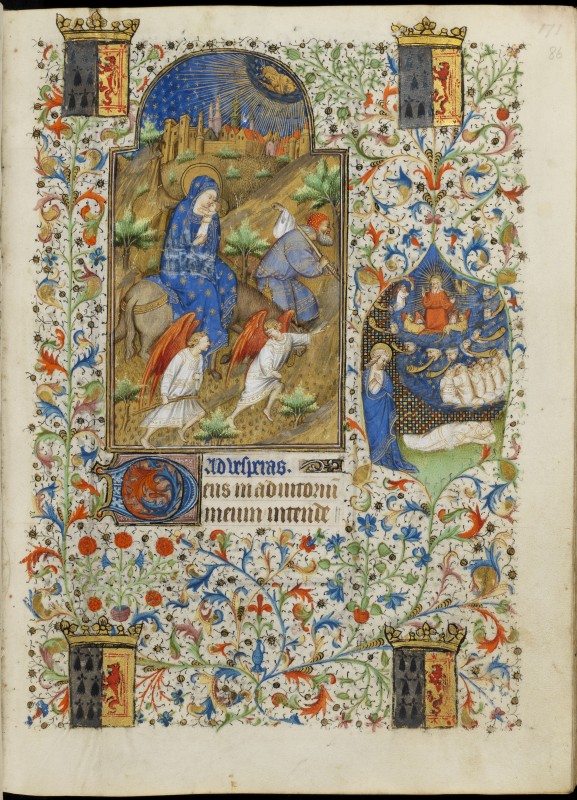 86
Ad vesperas.
Deus in adiutorium
meum intende